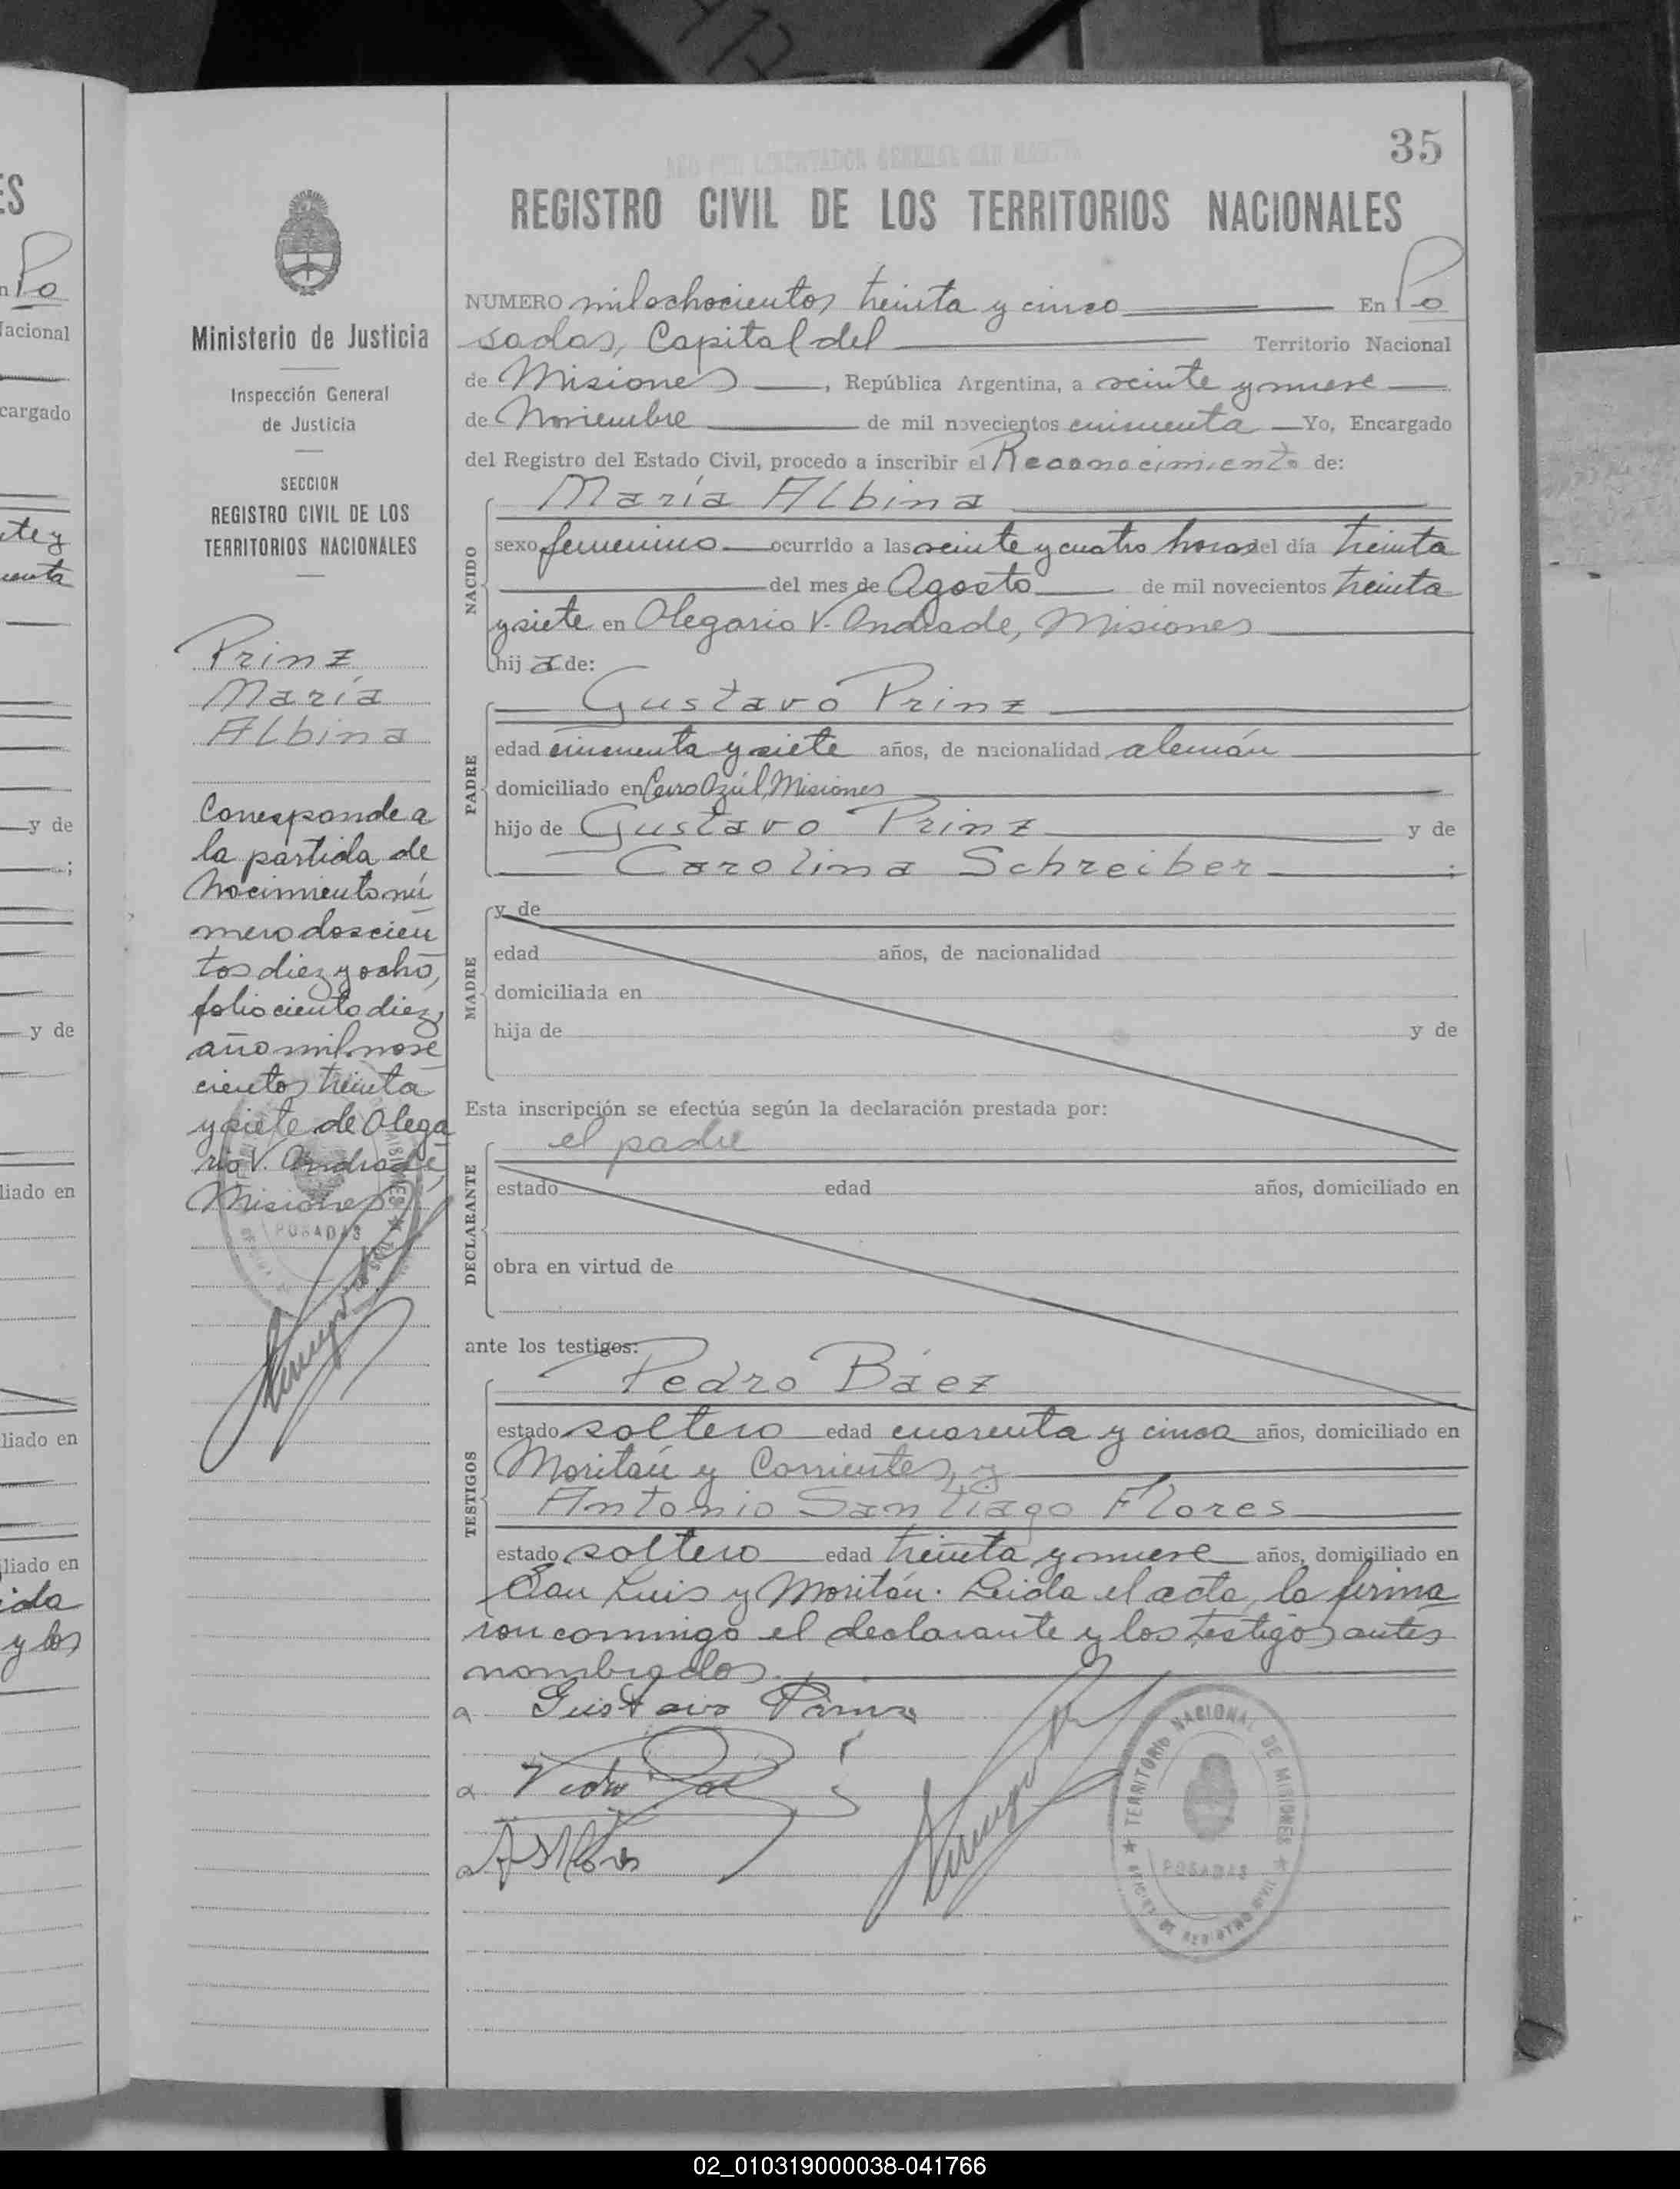 35
AÑO DEL LIBERTADOR GENERAL SAN MARTIN
REGISTRO CIVIL DE LOS TERRITORIOS NACIONALES
Ministerio de Justicia
Inspección General
de Justicia
SECCION
REGISTRO CIVIL DE LOS
TERRITORIOS NACIONALES
Prinz
María
Albina
Corresponde a
la partida de
Nacimiento nú
mero doscien
tos diez y ocho,
folio ciento diez,
año mil nove
cientos treinta
y siete de Olega
rio V. Andrade,
Misiones
POSADAS
NUMERO mil ochocientos treinta y cinco En Po
sadas, Capital del Territorio Nacional
de Misiones, República Argentina, a veinte y nueve
de Noviembre de mil novecientos cincuenta Yo, Encargado
del Registro del Estado Civil, procedo a inscribir el Reconocimiento de:
NACIDO
María Albina
sexo femenino ocurrido a las veinte y cuatro horas del día treinta
del mes de Agosto de mil novecientos treinta
y siete en Olegario V. Andrade, Misiones
hija de:
PADRE
Gustavo Prinz
edad cincuenta y siete años, de nacionalidad alemán
domiciliado en Cerro Azúl, Misiones
hijo de Gustavo Prinz y de
Carolina Schreiber ;
MADRE
y de
edad años, de nacionalidad
domiciliada en
hija de y de
Esta inscripción se efectúa según la declaración prestada por:
DECLARANTE
el padre
estado edad años, domiciliado en
obra en virtud de
ante los testigos:
TESTIGOS
Pedro Báez
estado soltero edad cuarenta y cinco años, domiciliado en
Moritán y Corrientes, y
Antonio Santiago Flores
estado soltero edad treinta y nueve años, domiciliado en
San Luis y Moritán. Leida el acta, la firma
ron conmigo el declarante y los testigos antes
nombrados.
a Gustavo Prinz
a Pedro Baez
a A S Flores
TERRITORIO NACIONAL DE MISIONES
POSADAS
OFICINA DE REGISTRO CIVIL
ES
n Po
Nacional
cargado
te y
cuenta
y de
;
y de
liado en
liado en
liado en
ida
y los
02_010319000038-041766